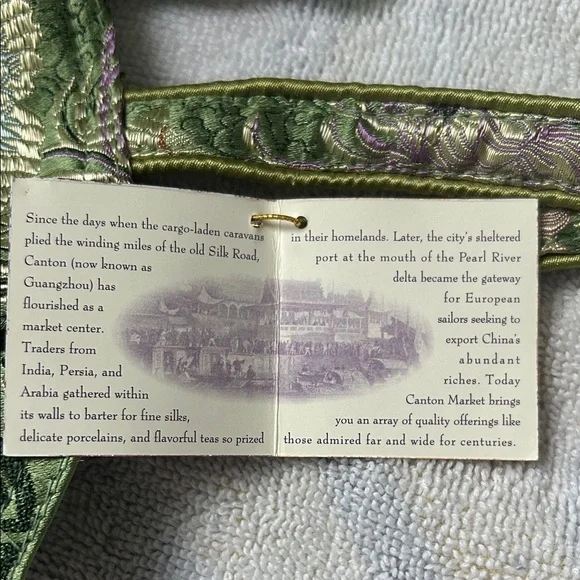 Since the days when the cargo-laden caravans
plied the winding miles of the old Silk Road,
Canton (now known as
Guangzhou) has
flourished as a
market center.
Traders from
India, Persia, and
Arabia gathered within
its walls to barter for fine silks,
delicate porcelains, and flavorful teas so prized
in their homelands. Later, the city's sheltered
port at the mouth of the Pearl River
delta became the gateway
for European
sailors seeking to
export China's
abundant
riches. Today
Canton Market brings
you an array of quality offerings like
those admired far and wide for centuries.